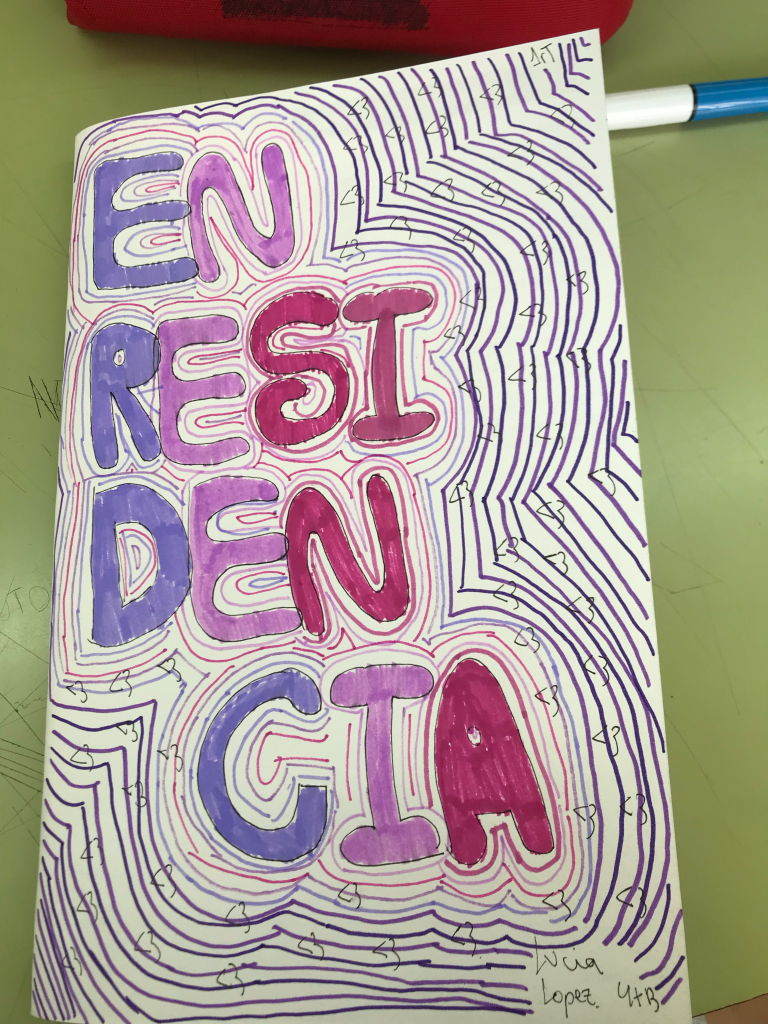 EN
RESI
DEN
CIA
Lucia
Lopez.